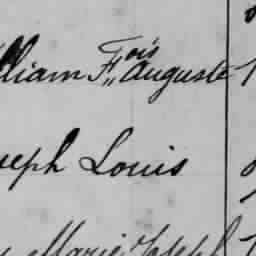 lliam Fois Auguste
seph Louis
Marie Joseph